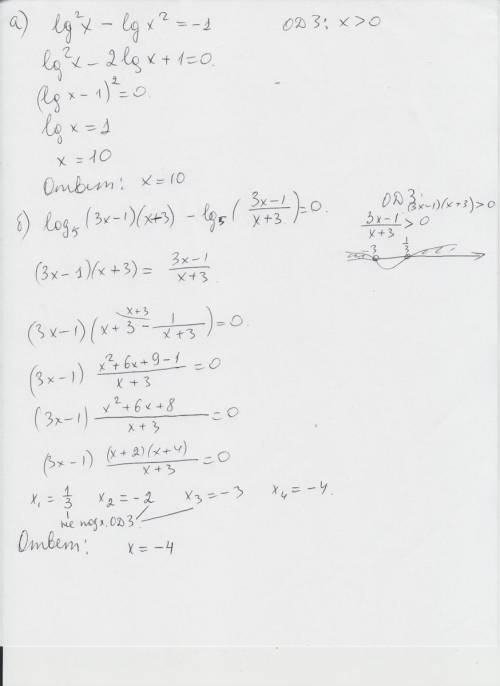 а) lg²x − lg x² = −1   ОДЗ: x > 0
lg²x − 2 lg x + 1 = 0.
(lg x − 1)² = 0.
lg x = 1
x = 10
Ответ: x = 10
б) log₅ (3x−1)(x+3) − log₅ ( (3x−1)/(x+3) ) = 0.
ОДЗ:
(3x−1)(x+3) > 0
(3x−1)/(x+3) > 0
−3   1/3
(3x − 1)(x + 3) = (3x−1)/(x+3)
(3x−1) (x + 3 − 1/(x+3)) = 0.
x+3
(3x−1) (x² + 6x + 9 − 1)/(x + 3) = 0
(3x−1) (x² + 6x + 8)/(x + 3) = 0
(3x−1) (x+2)(x+4)/(x+3) = 0
x₁ = 1/3   x₂ = −2   x₃ = −3   x₄ = −4.
не подх. ОДЗ
Ответ:   x = −4